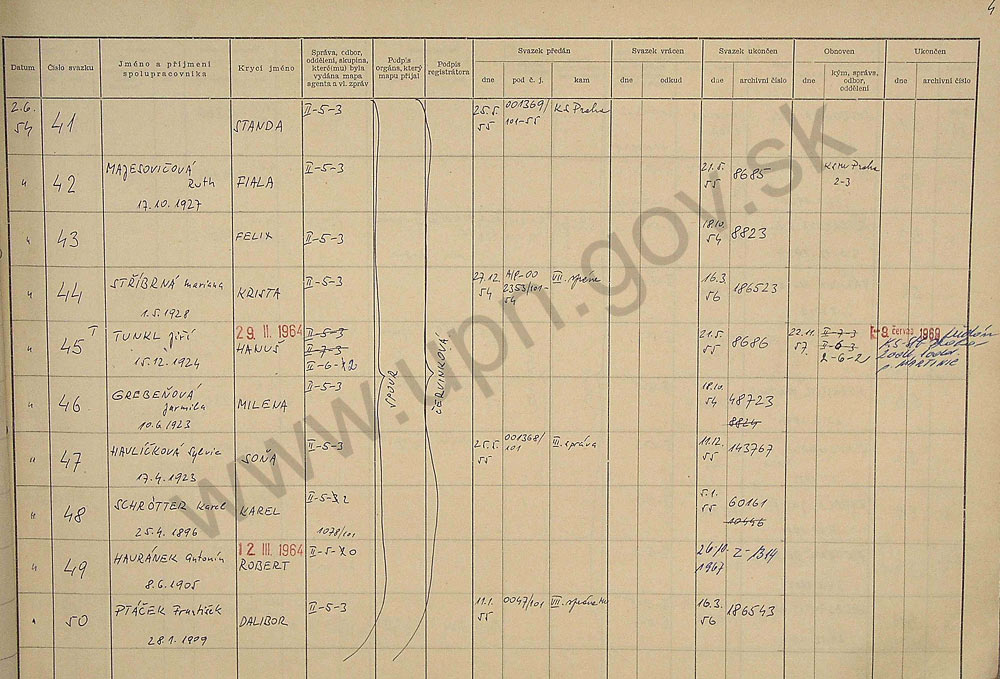 4
Datum
Číslo svazku
Jméno a příjmení spolupracovníka
Krycí jméno
Správa, odbor, oddělení, skupina, které(mu) byla vydána mapa agenta a vl. zpráv
Podpis orgánu, který mapu přijal
Podpis registrátora
Svazek předán
dne
pod č. j.
kam
Svazek vrácen
dne
odkud
Svazek ukončen
dne
archivní číslo
Obnoven
dne
kým, správa, odbor, oddělení
Ukončen
dne
archivní číslo
2.6. 54 41 STANDA II-5-3 25.5. 55 001369/101-55 KS Praha
" 42 MAJESOVIČOVÁ Ruth 17.10.1927 FIALA II-5-3 21.5. 55 8685 Praha 2-3
" 43 FELIX II-5-3 18.10. 54 8823
" 44 STŘÍBRNÁ Mariana 1.5.1928 KRISTA II-5-3 27.12. 54 A/P-00 2353/101-54 VII. správa 16.3. 56 186523
" 45 TUNKL Jiří 15.12.1924 29 II. 1964 HANUŠ II-5-3 II-7-3 II-6-2 21.5. 55 8686 22.11. 57 II-7-3 II-6-3 2-6-2 8. červas 1960
" 46 GREBEŇOVÁ Jarmila 10.6.1923 MILENA II-5-3 18.10. 54 48723 8824
" 47 HAVLÍČKOVÁ Sylvie 17.4.1923 SOŇA II-5-3 25.5. 55 001368/101 III. správa 11.12. 55 143767
" 48 SCHRÖTTER Karel 25.4.1896 KAREL II-5-2 1078/101 5.1. 55 60161 10446
" 49 HAVRÁNEK Antonín 8.6.1905 12 III. 1964 ROBERT II-5-0 26/10. 1967 Z-/314
" 50 PTÁČEK František 28.1.1909 DALIBOR II-5-3 11.1. 55 0047/101 VII. 16.3. 56 186543
SPOUR
ČERVINKOVÁ
www.upn.gov.sk